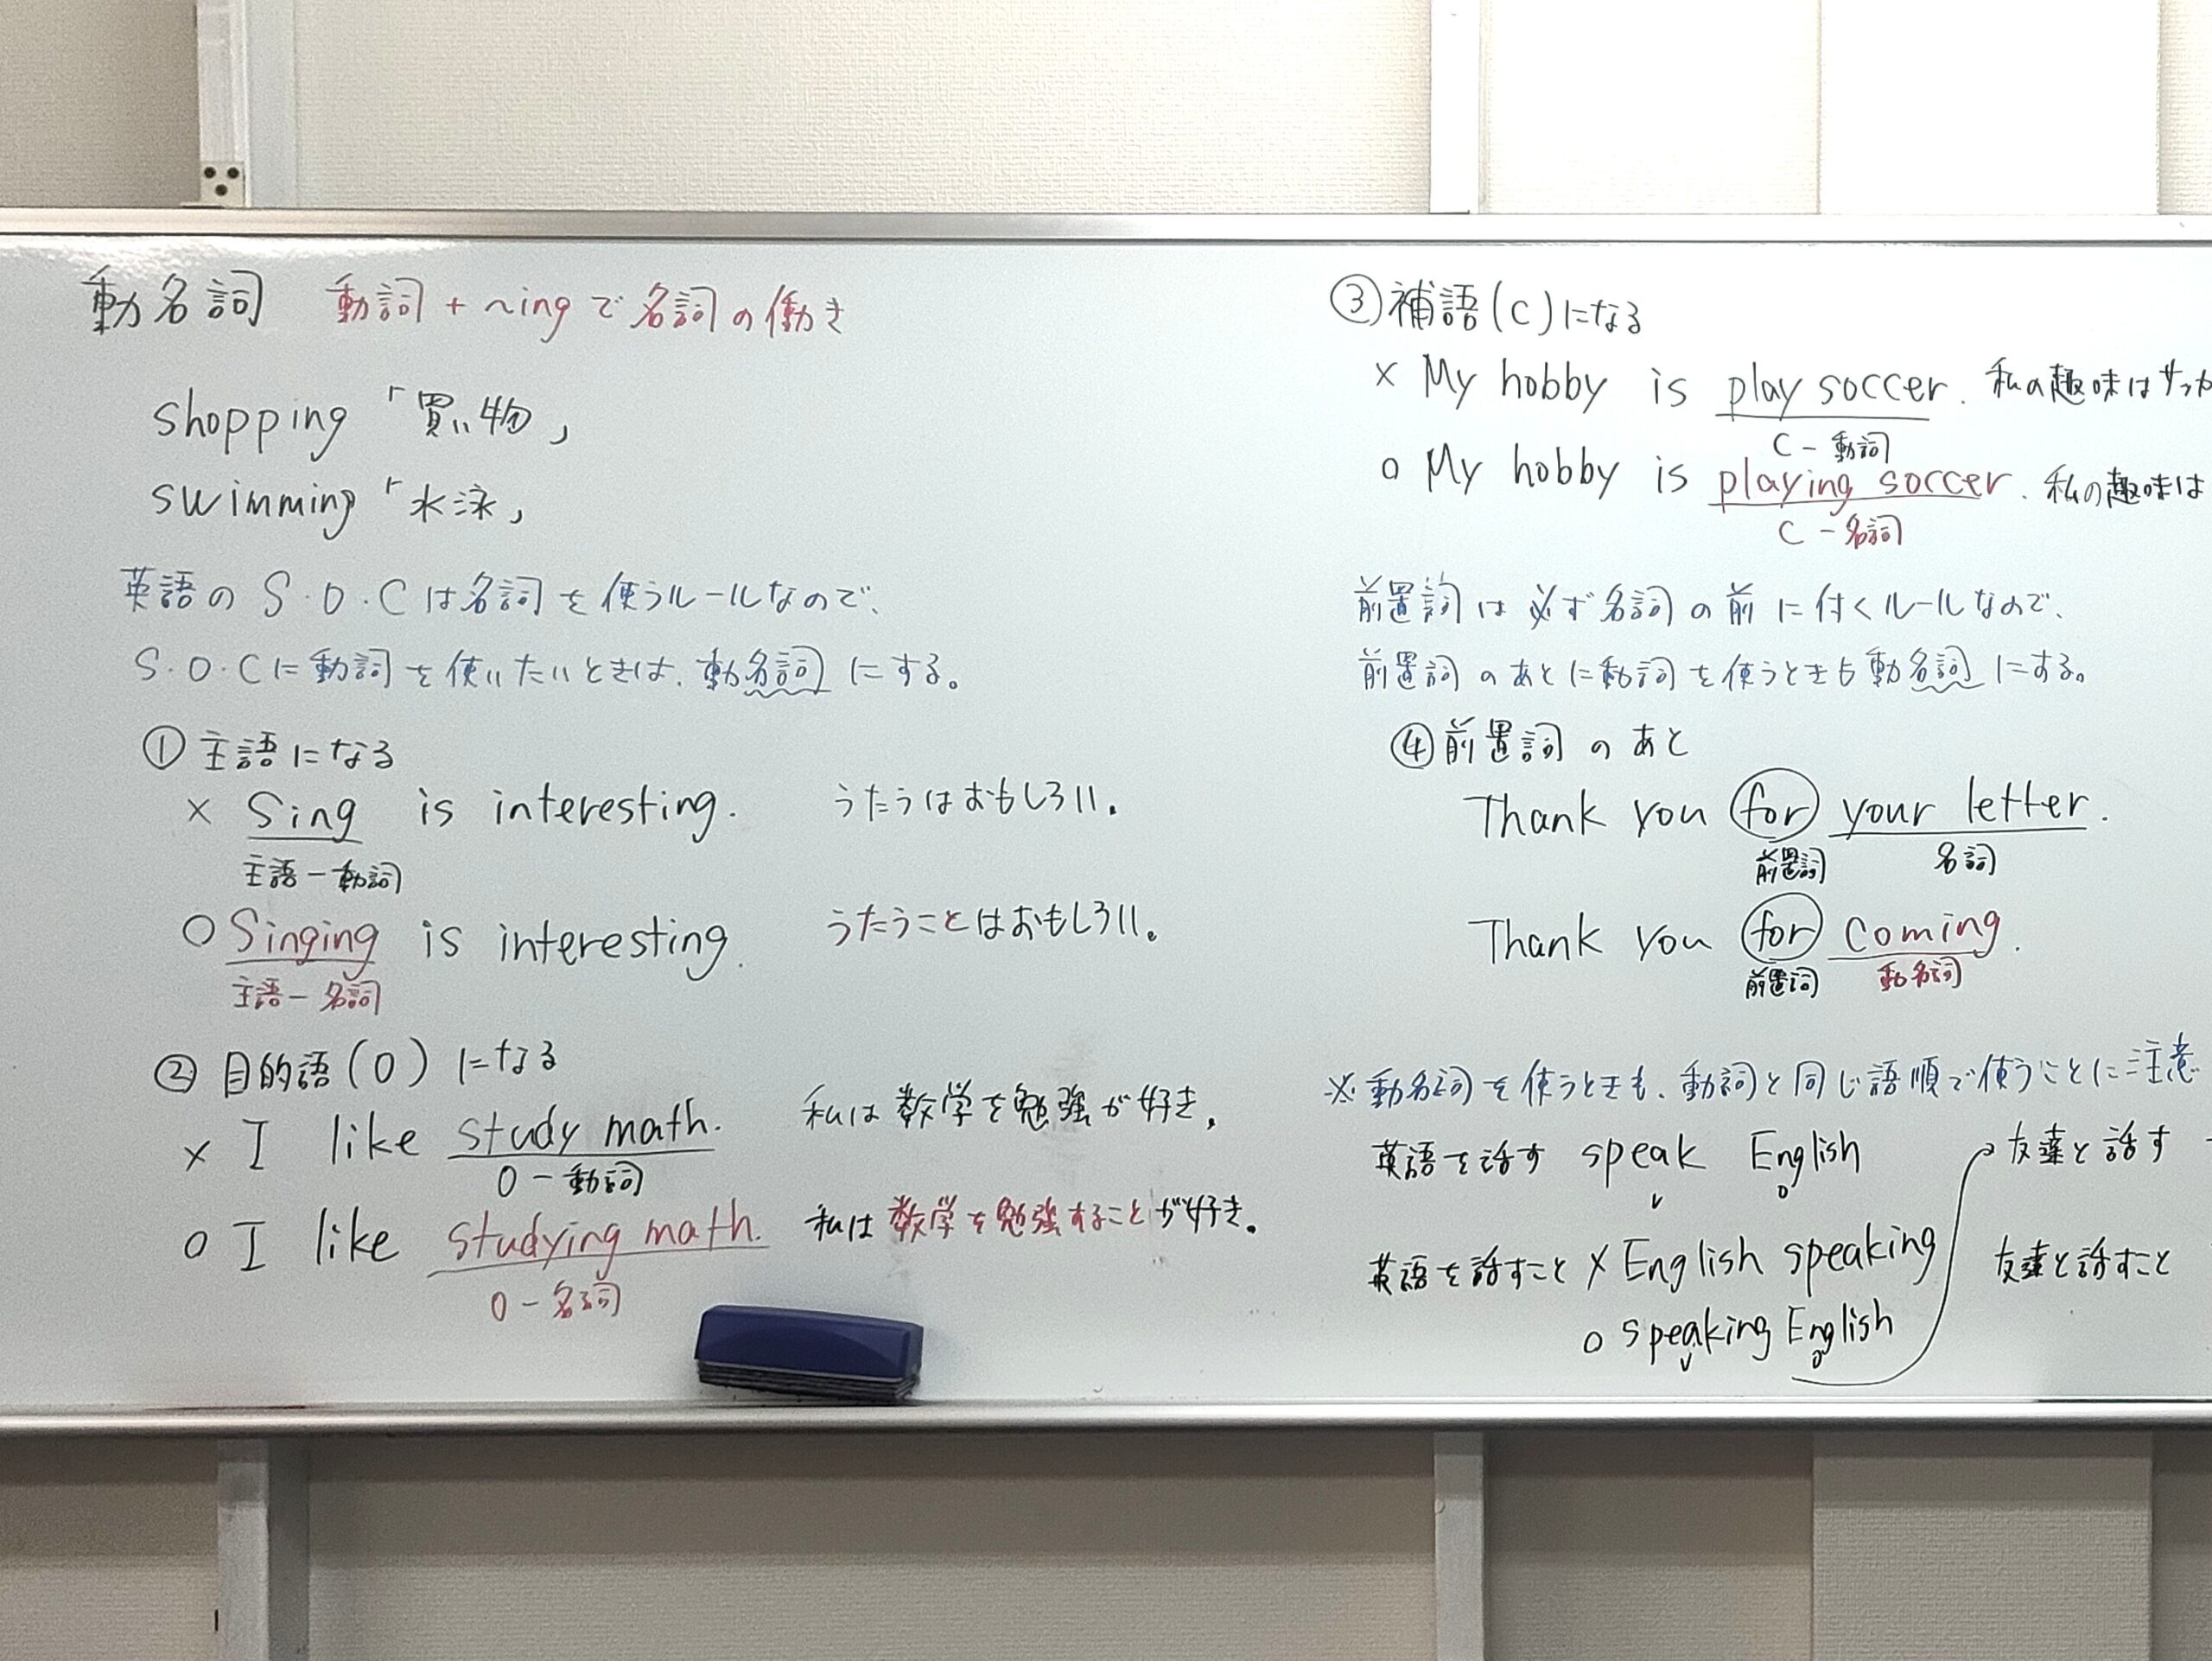 動名詞 動詞+~ingで名詞の働き
shopping「買い物」
swimming「水泳」
英語のS・O・Cは名詞を使うルールなので、
S・O・Cに動詞を使いたいときは、動名詞にする。
①主語になる
× Sing is interesting. うたうはおもしろい。
主語-動詞
○ Singing is interesting. うたうことはおもしろい。
主語-名詞
②目的語(O)になる
× I like study math. 私は数学を勉強が好き。
O-動詞
○ I like studying math. 私は数学を勉強することが好き。
O-名詞
③補語(C)になる
× My hobby is play soccer. 私の趣味はサッカ
C-動詞
○ My hobby is playing soccer. 私の趣味は
C-名詞
前置詞は必ず名詞の前に付くルールなので、
前置詞のあとに動詞を使うときも動名詞にする。
④前置詞のあと
Thank you for your letter.
前置詞 名詞
Thank you for coming.
前置詞 動名詞
※動名詞を使うときも、動詞と同じ語順で使うことに注意
英語を話す speak English 友達と話す
V O
英語を話すこと × English speaking 友達と話すこと
○ speaking English
V O